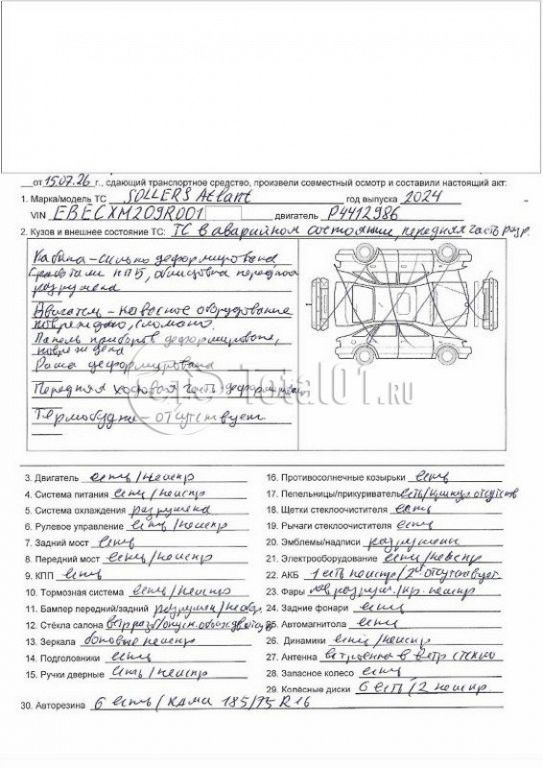 от 15.07.26 г., сдающий транспортное средство, произвели совместный осмотр и составили настоящий акт:
1. Марка/модель ТС SOLLERS Atlant год выпуска 2024
VIN EBECXM209R001 двигатель P4412986
2. Кузов и внешнее состояние ТС: ТС в аварийном состоянии, передняя часть разр.
Кабина - сильно деформирована
Сработали ППБ, облицовка передняя
разрушена
Двигатель - навесное оборудование
повреждено, сломано.
Панель приборов деформирована,
повреждена
Рама деформирована
Передняя ходовая часть деформ
Термобудка - отсутствует
Total01.RU
3. Двигатель есть/неиспр
4. Система питания есть/неиспр
5. Система охлаждения разрушена
6. Рулевое управление есть/неиспр
7. Задний мост есть
8. Передний мост есть/неиспр
9. КПП есть
10. Тормозная система есть/неиспр
11. Бампер передний/задний разрушен/
12. Стёкла салона
13. Зеркала боковые неиспр
14. Подголовники есть
15. Ручки дверные есть/неиспр
16. Противосолнечные козырьки есть
17. Пепельницы/прикуриватель есть/ отсутств
18. Щетки стеклоочистителя есть
19. Рычаги стеклоочистителя есть
20. Эмблемы/надписи разрушены
21. Электрооборудование есть/неиспр
22. АКБ 1 есть неиспр/2й отсутствует
23. Фары лев разруш./пр. неиспр
24. Задние фонари есть
25. Автомагнитола есть
26. Динамики есть/неиспр
27. Антенна встроенна в ветр стекло
28. Запасное колесо есть
29. Колесные диски 6 есть/2 неиспр.
30. Авторезина 6 есть/кама 185/75 R16